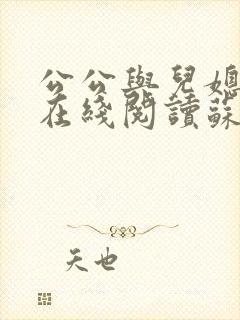 公公與兒媳
在綫閱讀蘇
天也